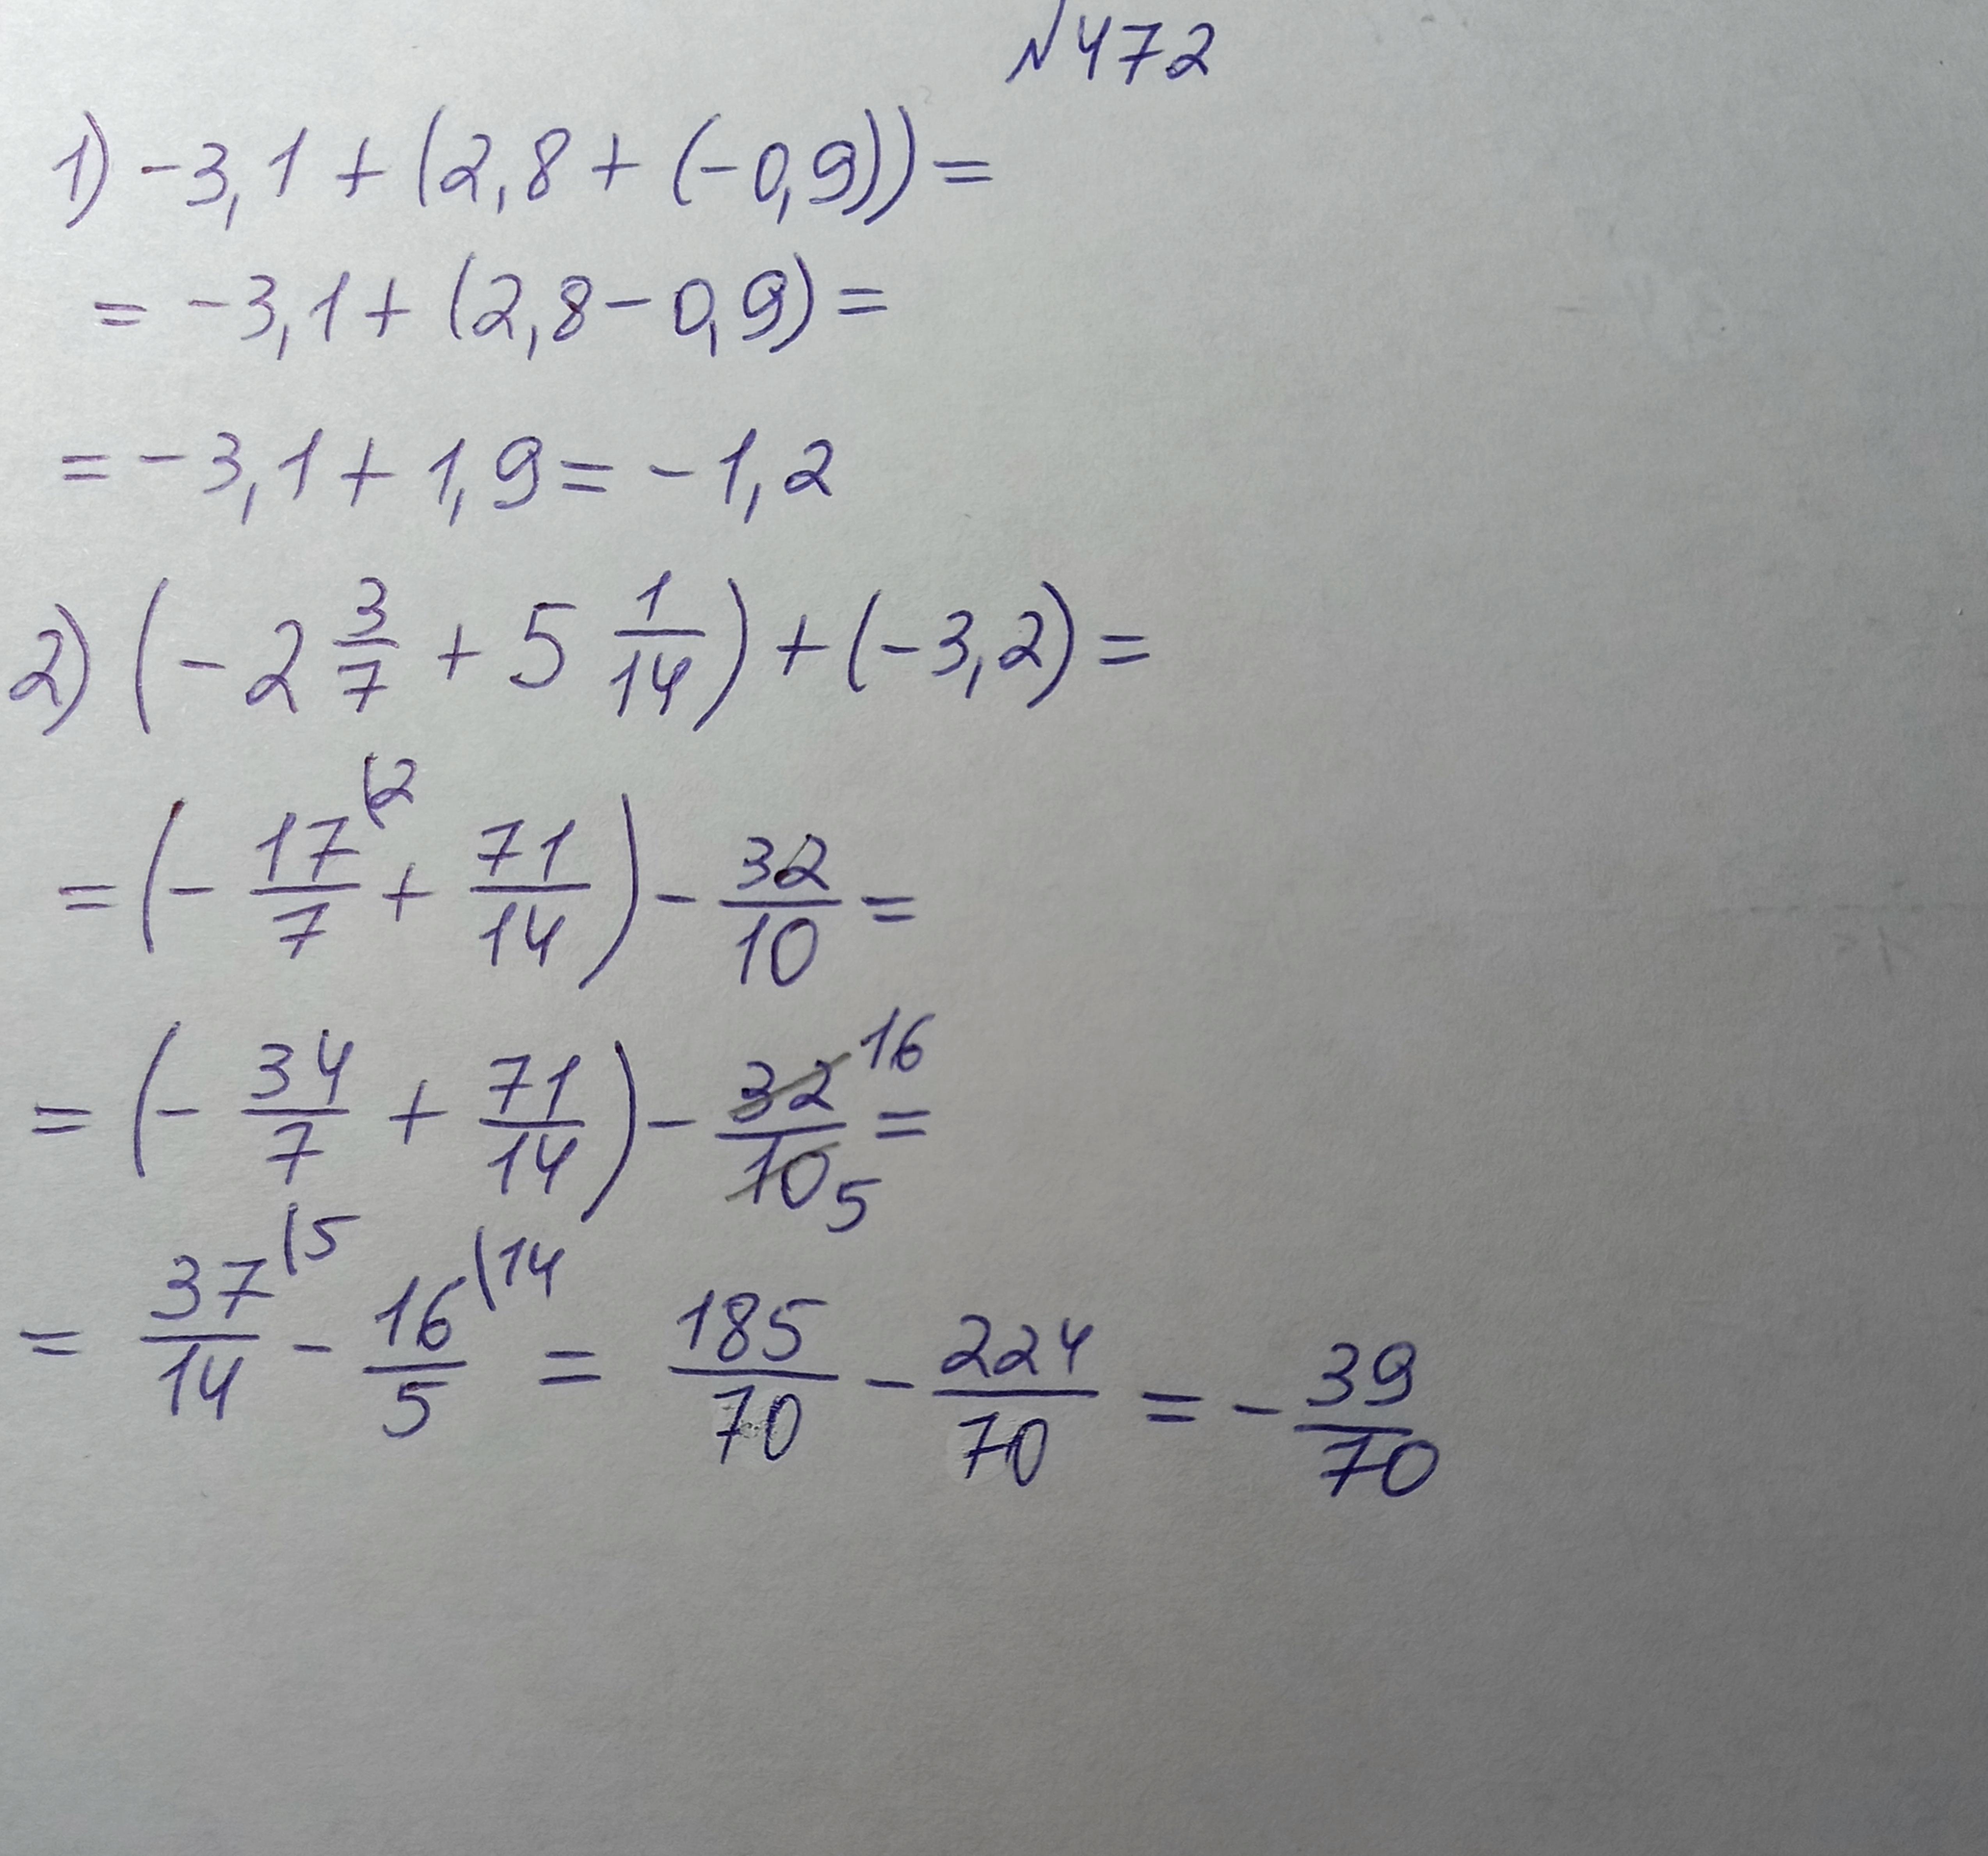 №472
1) -3,1 + (2,8 + (-0,9)) =
= -3,1 + (2,8 - 0,9) =
= -3,1 + 1,9 = -1,2
2) (-2 3/7 + 5 1/14) + (-3,2) =
= (- 17/7 (2 + 71/14) - 32/10 =
= (- 34/7 + 71/14) - 32/10 16 5 =
= 37/14 (5 - 16/5 (14 = 185/70 - 224/70 = - 39/70